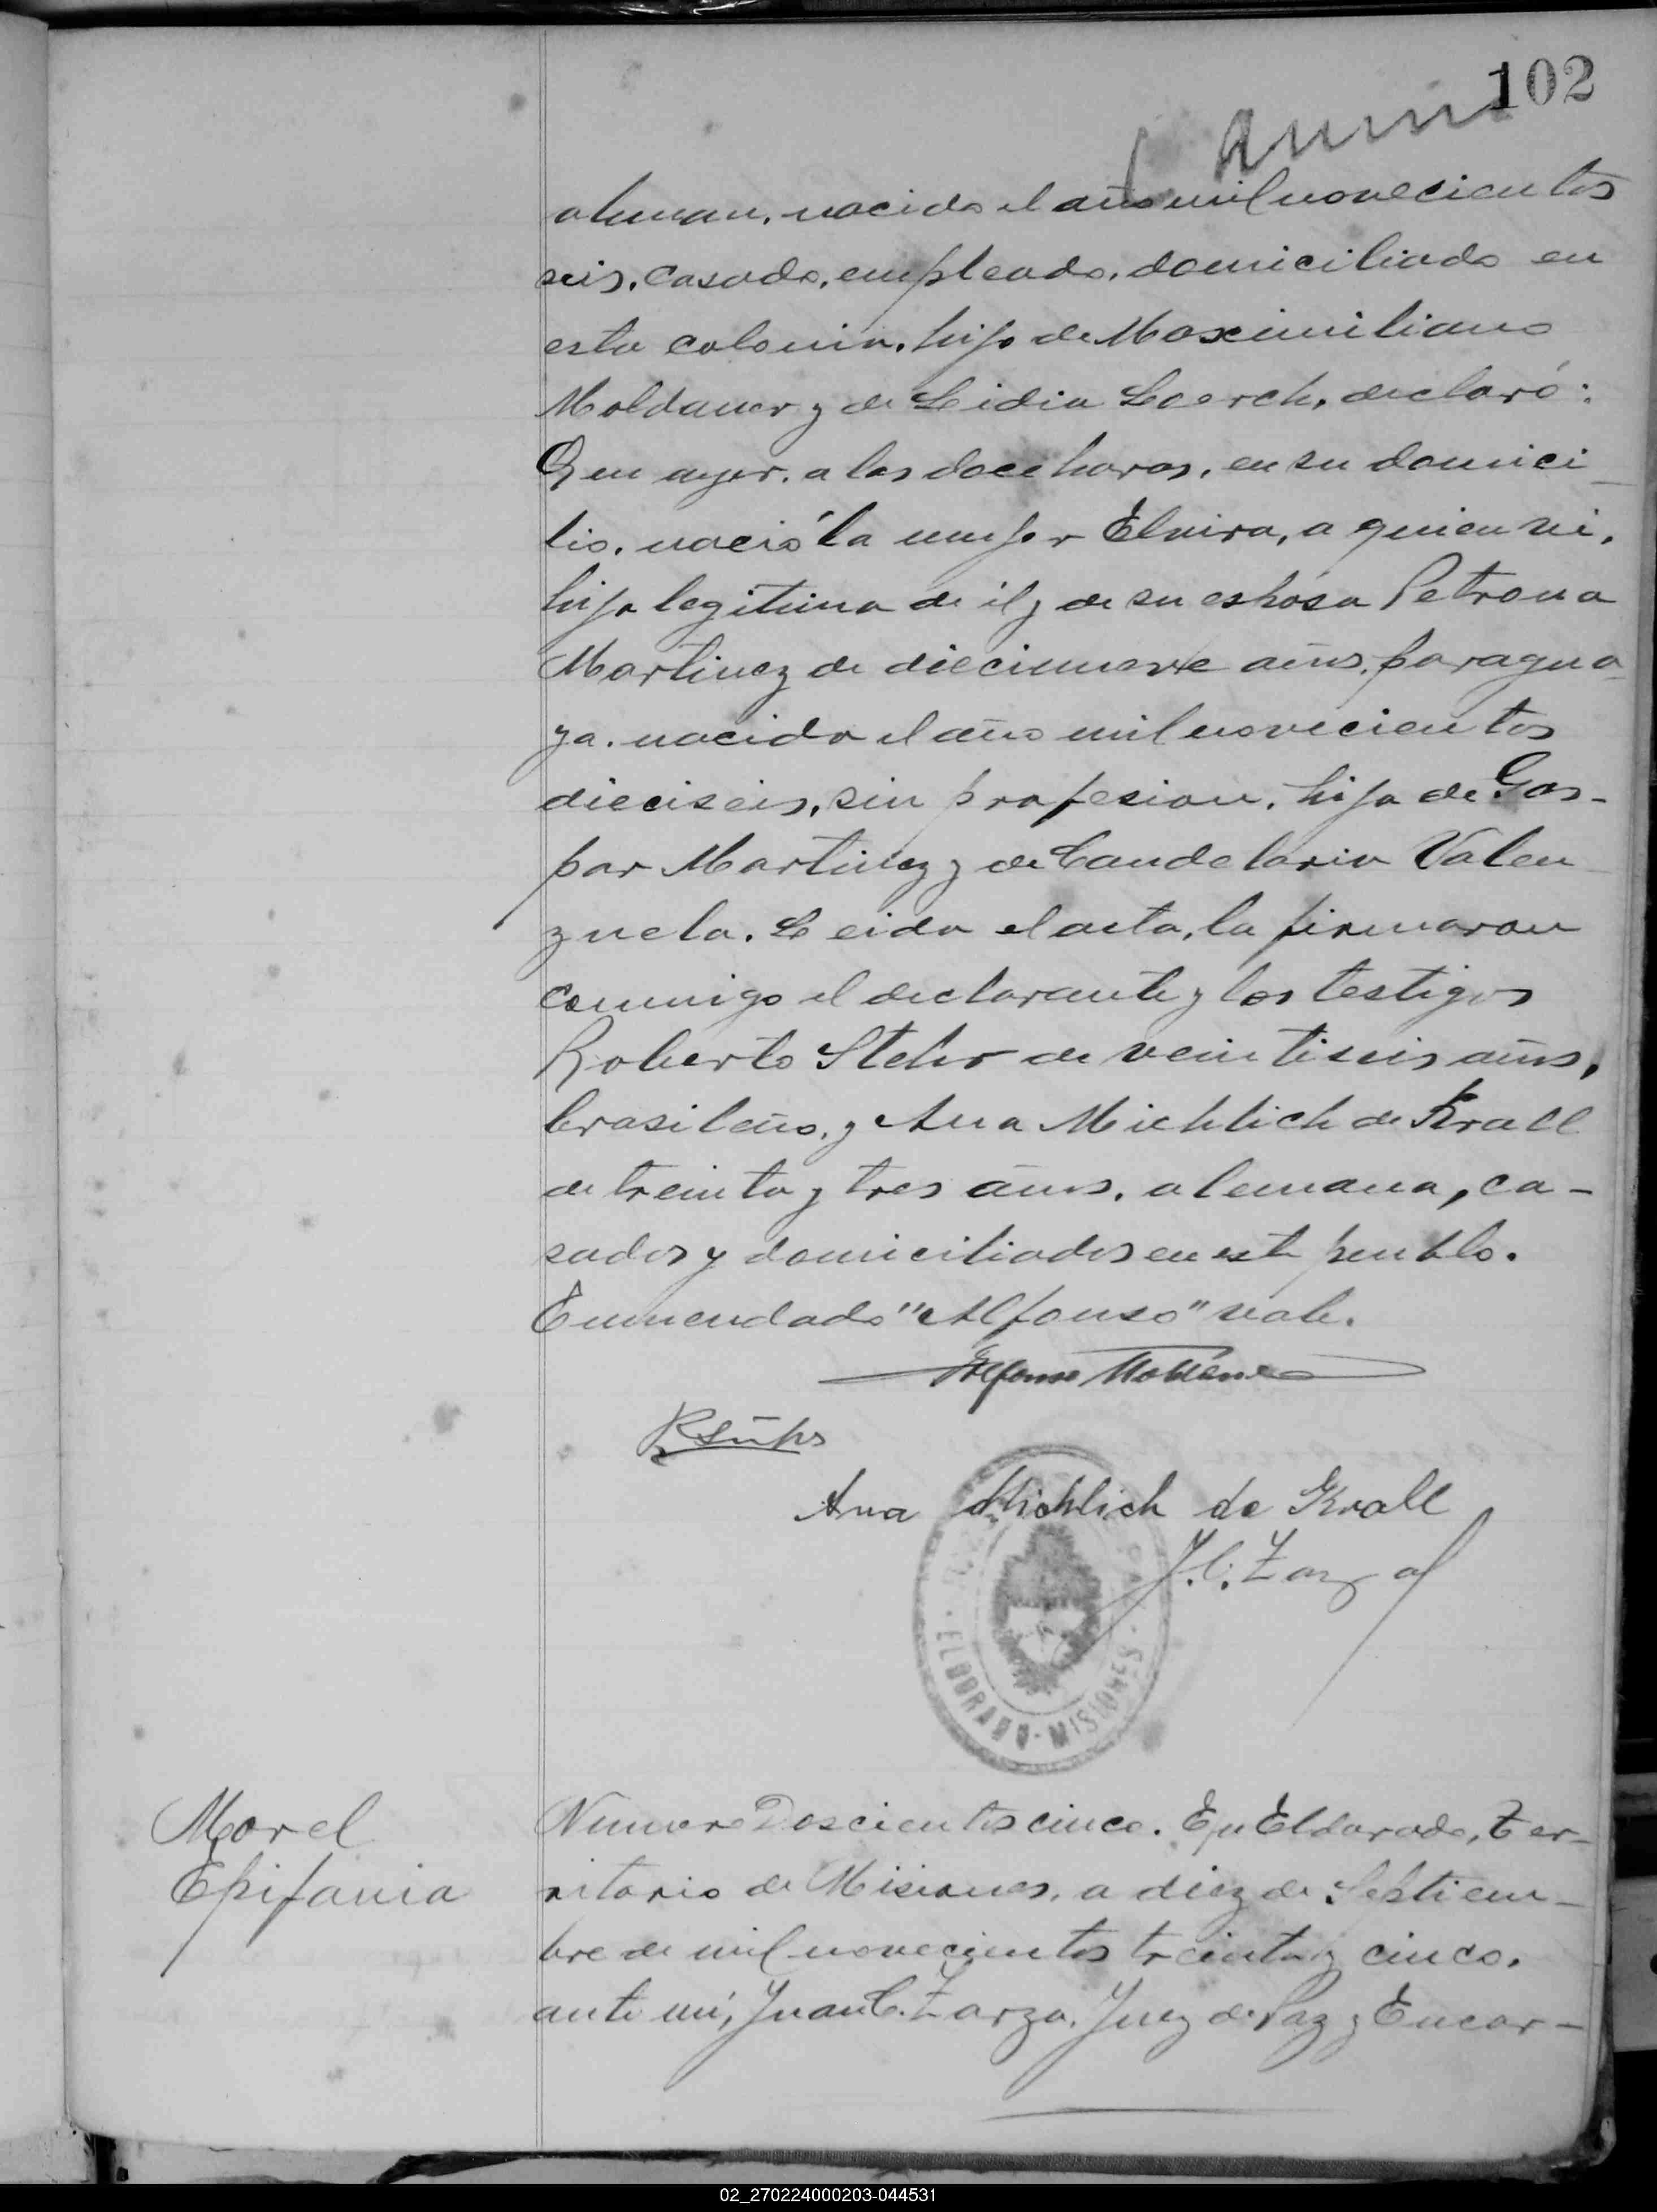 102
aleman, nacido el año mil novecientos
seis, casado, empleado, domiciliado en
esta colonia, hijo de Maximiliano
Moldauer y de Lidia Loerch, declaró:
Que ayer, a las doce horas, en su domici
lio, nació la mujer Elvira, a quien vi,
hija legitima de él y de su esposa Petrona
Martinez de diecinueve años, paragua-
ya, nacida el año mil novecientos
dieciseis, sin profesion, hija de Gas-
par Martinez y de Candelaria Valen
zuela. Leida el acta, la firmaron
conmigo el declarante y los testigos
Roberto Stehr de veintiseis años,
brasileño, y Ana Michlich de Krall
de treinta y tres años, alemana, ca-
sados y domiciliados en este pueblo.
Enmendado "Alfonso" vale.
Alfonso
Ana Michlich de Krall
J. C. Zarza
ELDORADO - MISIONES
Morel
Epifania
Numero Doscientos cinco. En Eldorado, Ter-
ritorio de Misiones, a diez de Septiem-
bre de mil novecientos treinta y cinco,
ante mí, Juan C. Zarza, Juez de Paz y Encar-
02_270224000203-044531